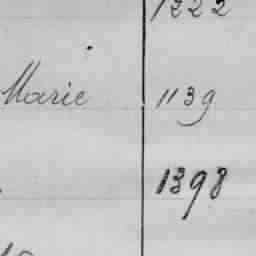 1222
Marie 1139
1398